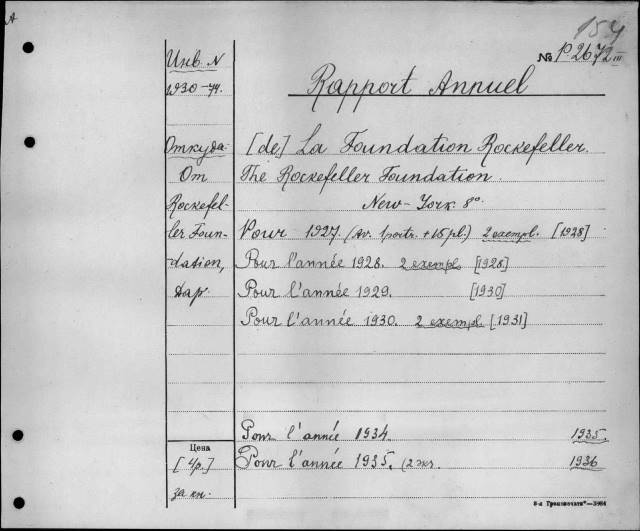 154
№ P.2672 III
Инв. N
1930-74.
Rapport Annuel
Откуда
От
Rockefel-
ler Foun-
dation,
дар.
[de] La Foundation Rockefeller.
The Rockefeller Foundation.
New-York. 8°.
Pour 1927. (Av. 1 portr. + 18 pl.) 2 exempl. [1928]
Pour l'année 1928. 2 exempl [1928]
Pour l'année 1929. [1930]
Pour l'année 1930. 2 exempl [1931]
Pour l'année 1934. 1935.
Цена
[4р.]
за кн.
Pour l'année 1935. (2 экз. 1936